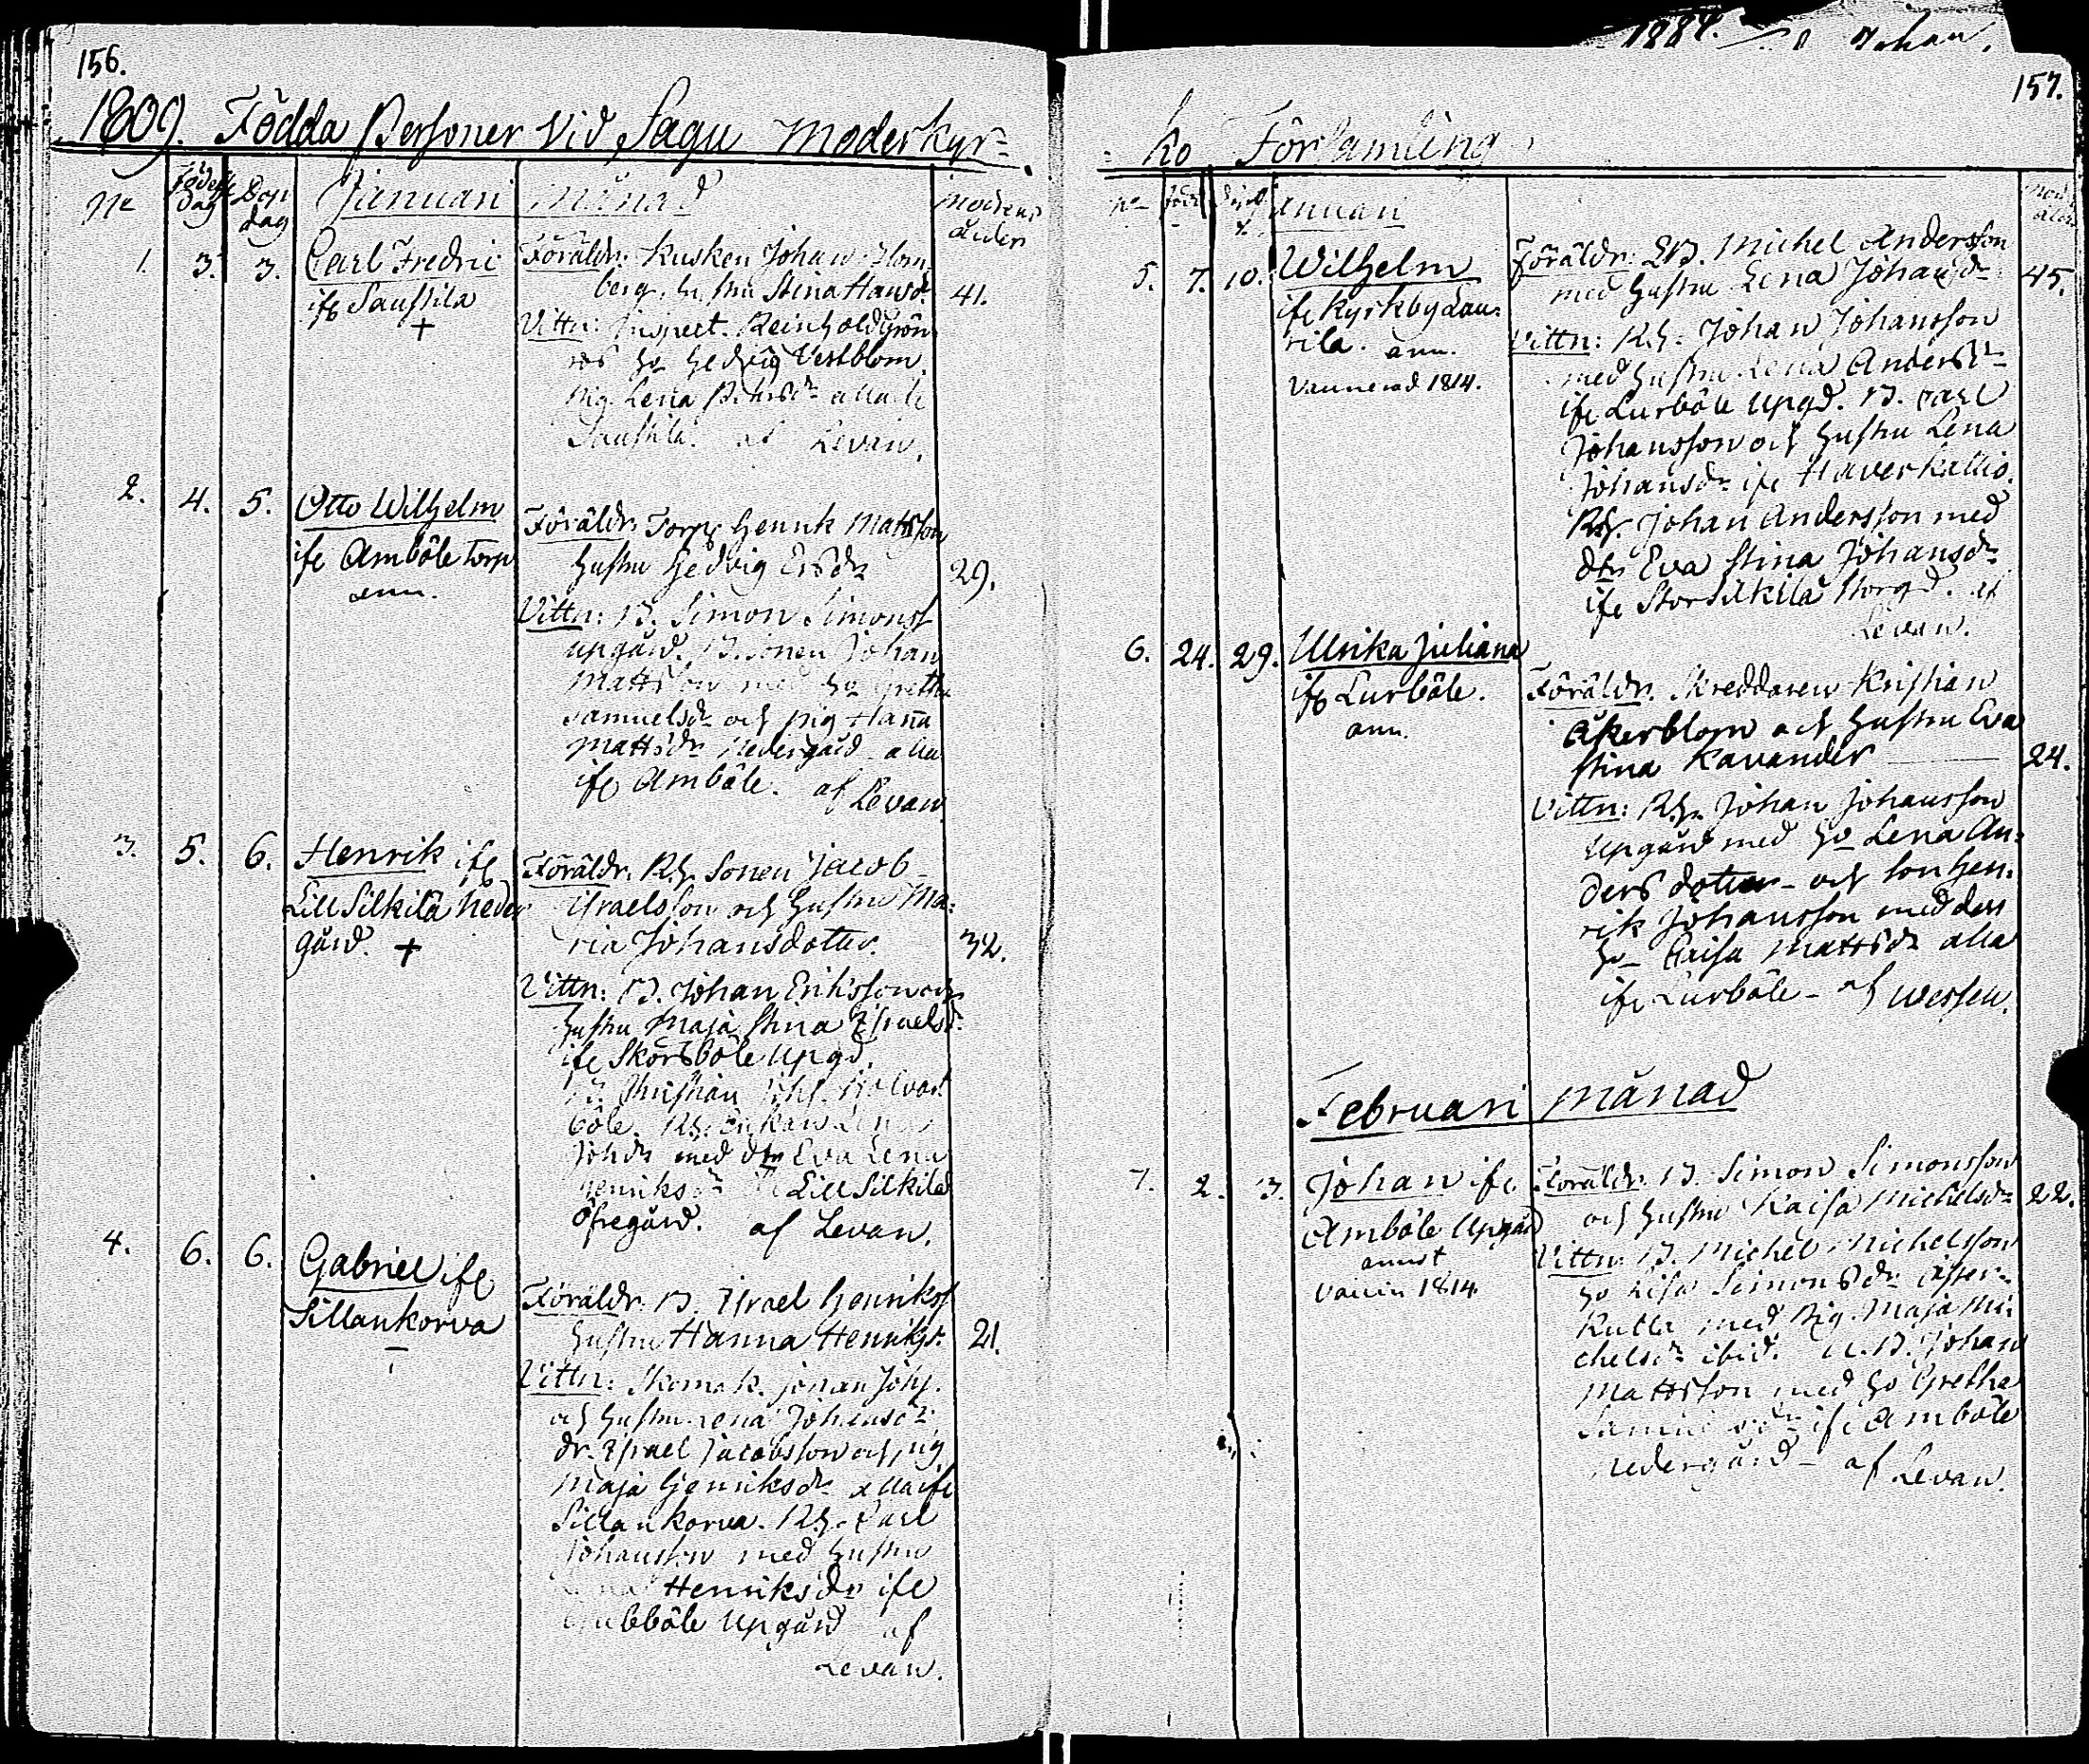 156.
1809. Födda Personer vid Sagu Moderkyr=
No Födelse dag Dop dag Januari månad Modrens ålder
1. 3. 3. Carl Fredric
ifr Saustila
+
Föräldr: Kusken Johan
berg, hustru Stina Hansdr 41.
Vittn: Inspect. Reinhold Grön
roos ho Hedvig Vestblom.
Pig. Lena alla ifr
Saustila. af Levan.
2. 4. 5. Otto Wilhelm
ifr Amböle Torp
ann.
Föräldr: Torp. Henrik Mattsson
hustru Hedvig Ersdr 29.
Vittn: B. Simon Simonss
upgård. B. sonen Johan
Mattsson med ho Gretha
Samuelsdr och pig Hanna
Mattsdr Nedergård alla
ifr Amböle. af Levan.
3. 5. 6. Henrik ifr
Lill Silkilä Neder
gård. +
Föräldr: Rh. Sonen Jacob
Israelsson och hustru Ma=
ria Johansdotter. 32.
Vittn: B. Johan Eriksson och
hustru Maja Stina Israelsd.
ifr Skorsböle Upgd.
B. Christian Johs.
böle. Rh. Enkan Lena
Johsdr med dtr Eva Lena
Henriksdr ifr Lill Silkilä
Öfregård. af Levan.
4. 6. 6. Gabriel ifr
Sillankorva
Föräldr: B. Israel Henrikss
hustru Hanna Henriksd. 21.
Vittn: Skomak. Johan Johs.
och hustru Lena Johansdr
dr. Israel Jacobsson och pig
Maja Henriksdr alla ifr
Sillankorva. Rh. Carl
Johansson med hustru
Henriksdr ifr
böle Upgård af
Levan.
1884. Johan.
157.
=ko Församling
No Född Döpt Januari Mod. ålder
5. 7. 10. Wilhelm
ifr Kyrkby Lau=
rila. ann.
Vaccinerad 1814.
Föräldr: B. Michel Andersson
med hustru Lena Johansdr 45.
Vittn: Rh. Johan Johansson
med hustru Lena Andersdr
ifr Lurböle Upgd. B. Carl
Johansson och hustru Lena
Johansdr ifr Haverkallio.
Rh. Johan Andersson med
dtr Eva Stina Johansdr
ifr Stor Silkilä Storgd. af
Levan.
6. 24. 29. Ulrika Juliana
ifr Lurböle.
ann.
Föräldr. Skreddaren Kristian
Åkerblom och hustru Eva
Stina Kavander 24.
Vittn: Rh. Johan Johansson
Upgård med ho Lena An=
ders dotter och son Hen=
rik Johansson med dess
ho Caisa Mattsdr alla
ifr Lurböle af Wessen.
Februari månad
7. 2. 3. Johan ifr
Amböle Upgård
annot
Vaccin 1814.
Föräldr. B. Simon Simonsson
och hustru Kaisa Michelsdr 22.
Vittn: B. Michel Michelsson
ho Lisa Simonsdr
Kulla med Pig. Maja Mi=
chelsdr ibid. B. Johan
Mattsson med ho Gretha
Samuelsdr ifr Amböle
nedergård af Levan.